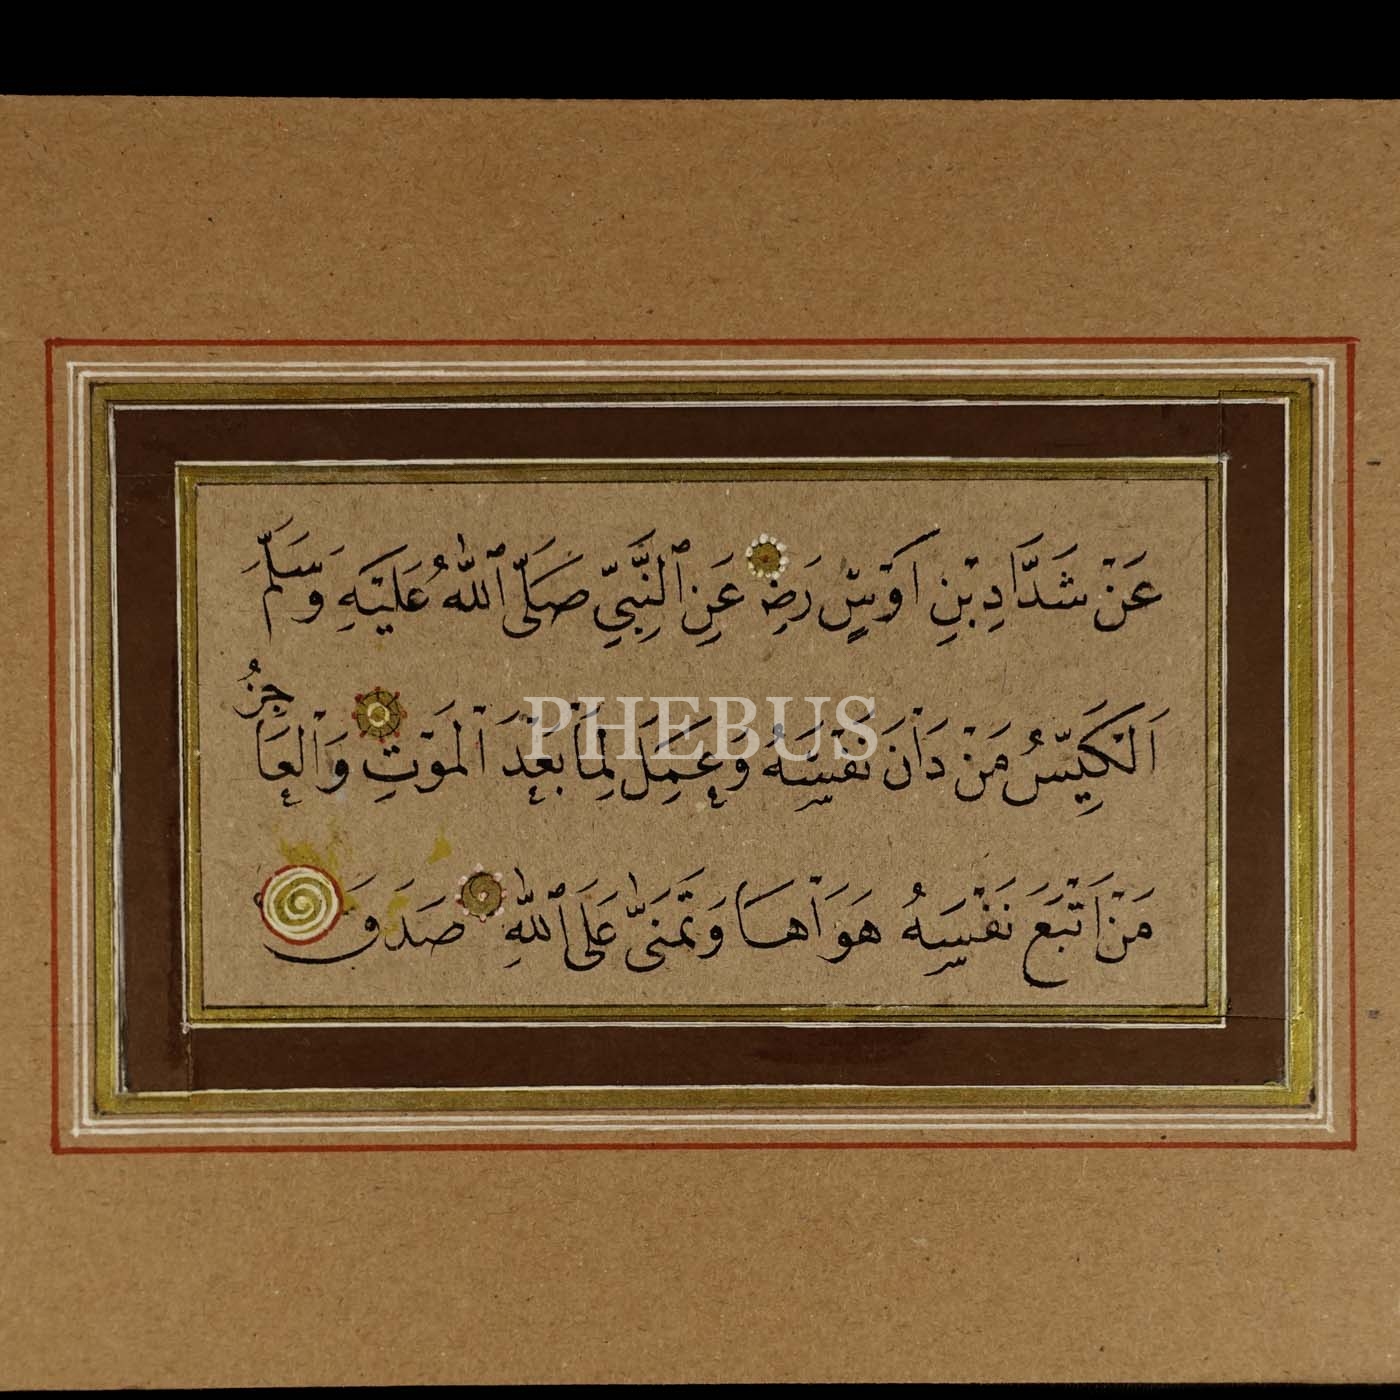 عَنْ شَدَّادِ بْنِ اَوْسٍ رَضِ عَنِ ٱلنَّبِيِّ صَلَّى ٱللّٰهُ عَلَيْهِ وَسَلَّمَ
اَلْكَيِّسُ مَنْ دَانَ نَفْسَهُ وَعَمِلَ لِمَا بَعْدَ الْمَوْتِ وَالْعَاجِزُ
PHEBUS
مَنْ اَتْبَعَ نَفْسَهُ هَوَاهَا وَتَمَنَّى عَلَى ٱللّٰهِ صَدَقَ